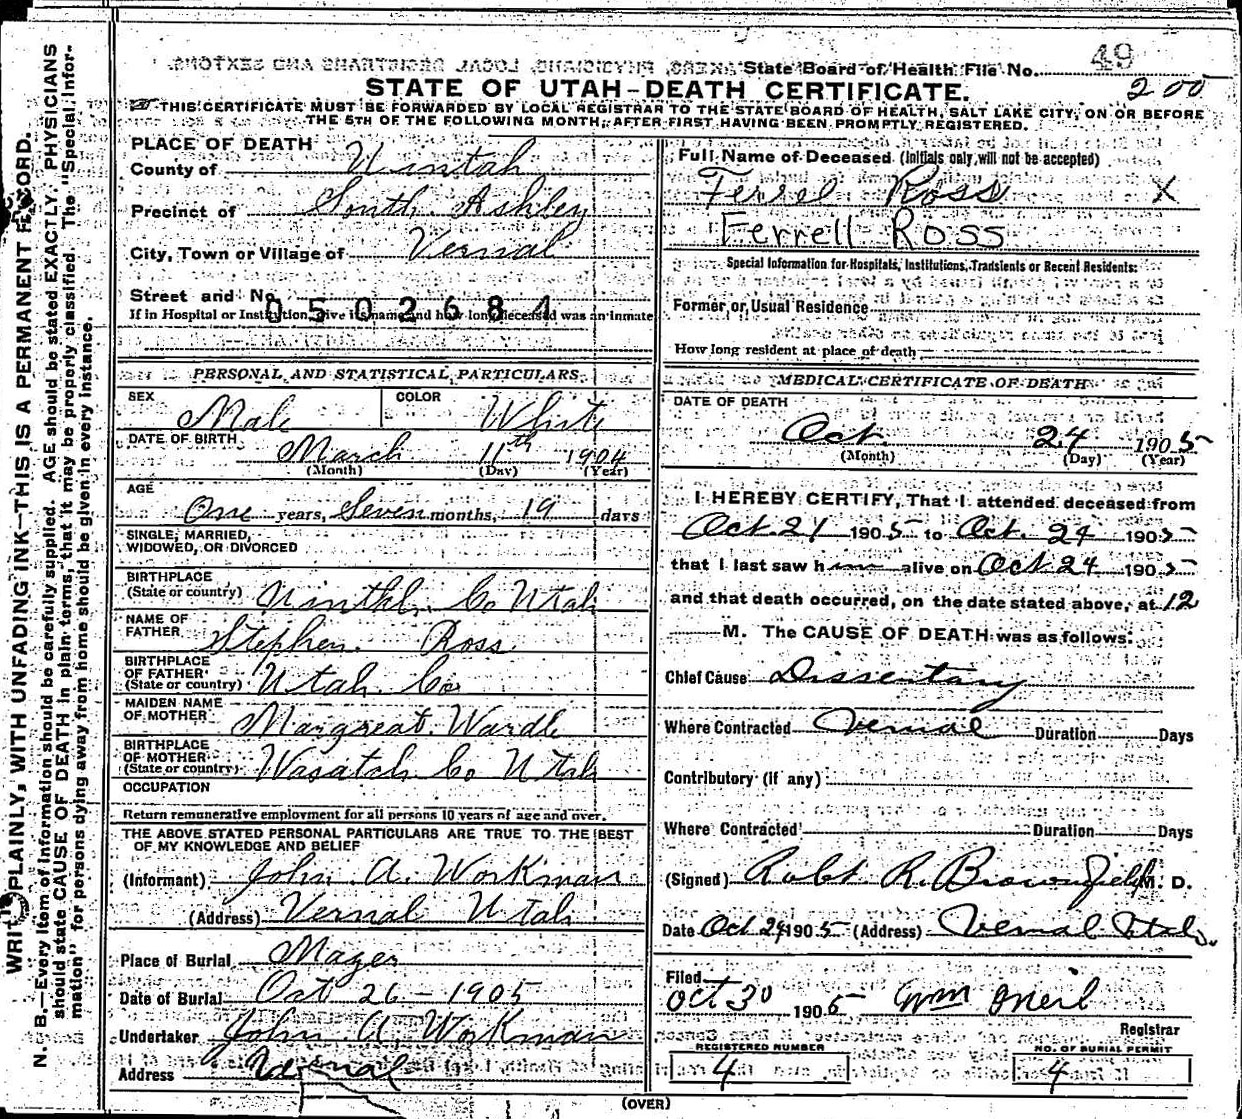 State Board of Health File No. 49
STATE OF UTAH–DEATH CERTIFICATE. 200
THIS CERTIFICATE MUST BE FORWARDED BY LOCAL REGISTRAR TO THE STATE BOARD OF HEALTH, SALT LAKE CITY, ON OR BEFORE
THE 5TH OF THE FOLLOWING MONTH, AFTER FIRST HAVING BEEN PROMPTLY REGISTERED.
PLACE OF DEATH
County of Uintah
Precinct of South Ashley
City, Town or Village of Vernal
Street and No.
0502684
If in Hospital or Institution, give its name and how long deceased was an inmate
Full Name of Deceased (Initials only, will not be accepted)
Ferrel Ross X
Ferrell Ross
Special Information for Hospitals, Institutions, Transients or Recent Residents:
Former or Usual Residence
How long resident at place of death
PERSONAL AND STATISTICAL PARTICULARS
SEX Male COLOR White
DATE OF BIRTH March 11th 1904
(Month) (Day) (Year)
AGE
One years, Seven months, 19 days
SINGLE, MARRIED,
WIDOWED, OR DIVORCED
BIRTHPLACE
(State or country) Co Utah
NAME OF
FATHER Stephen Ross
BIRTHPLACE
OF FATHER
(State or country) Utah Co
MAIDEN NAME
OF MOTHER Margreat Wardle
BIRTHPLACE
OF MOTHER
(State or country) Wasatch Co Utah
OCCUPATION
Return remunerative employment for all persons 10 years of age and over.
THE ABOVE STATED PERSONAL PARTICULARS ARE TRUE TO THE BEST
OF MY KNOWLEDGE AND BELIEF
(Informant) John A. Workman
(Address) Vernal Utah
Place of Burial Mazer
Date of Burial Oct 26–1905
Undertaker John A. Workman
Address Vernal
MEDICAL CERTIFICATE OF DEATH
DATE OF DEATH
Oct. 24 1905
(Month) (Day) (Year)
I HEREBY CERTIFY, That I attended deceased from
Oct. 21 1905 to Oct. 24 1905
that I last saw him alive on Oct 24 1905
and that death occurred, on the date stated above, at 12
M. The CAUSE OF DEATH was as follows:
Chief Cause Dissentary
Where Contracted Vernal Duration Days
Contributory (if any)
Where Contracted Duration Days
(Signed) Robt. R. Brownfield M. D.
Date Oct 24 1905 (Address) Vernal Utah.
Filed
Oct 30 1905 Wm Oneil
Registrar
REGISTERED NUMBER
4
NO. OF BURIAL PERMIT
4
(OVER)
WRITE PLAINLY, WITH UNFADING INK–THIS IS A PERMANENT RECORD.
N. B.–Every item of information should be carefully supplied. AGE should be stated EXACTLY. PHYSICIANS
should state CAUSE OF DEATH in plain terms, that it may be properly classified. The "Special Infor-
mation" for persons dying away from home should be given in every instance.